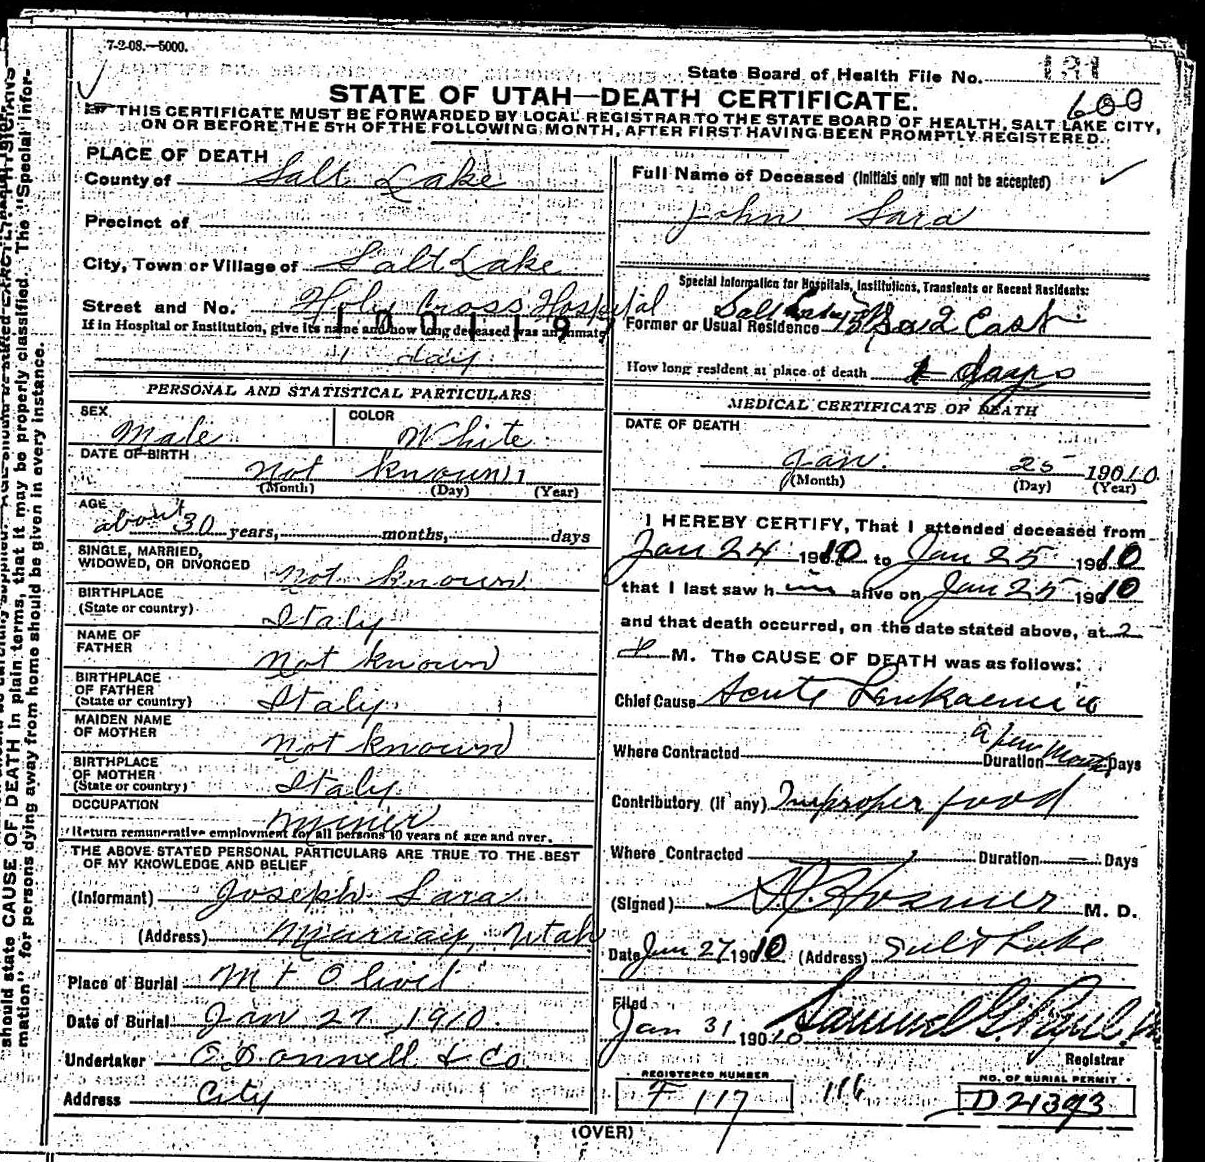 7-2-08.—5000.
State Board of Health File No. 131
600
STATE OF UTAH—DEATH CERTIFICATE.
THIS CERTIFICATE MUST BE FORWARDED BY LOCAL REGISTRAR TO THE STATE BOARD OF HEALTH, SALT LAKE CITY,
ON OR BEFORE THE 5TH OF THE FOLLOWING MONTH, AFTER FIRST HAVING BEEN PROMPTLY REGISTERED.
PLACE OF DEATH
County of Salt Lake
Precinct of
City, Town or Village of Salt Lake
Street and No. Holy Cross Hospital
If in Hospital or Institution, give its name and how long deceased was an inmate
1 day
PERSONAL AND STATISTICAL PARTICULARS
SEX COLOR
Male White
DATE OF BIRTH
Not known
(Month) (Day) (Year)
AGE
about 30 years, months, days
SINGLE, MARRIED,
WIDOWED, OR DIVORCED Not known
BIRTHPLACE
(State or country) Italy
NAME OF
FATHER Not known
BIRTHPLACE
OF FATHER
(State or country) Italy
MAIDEN NAME
OF MOTHER Not known
BIRTHPLACE
OF MOTHER
(State or country) Italy
OCCUPATION
Miner
Return remunerative employment for all persons 10 years of age and over.
THE ABOVE STATED PERSONAL PARTICULARS ARE TRUE TO THE BEST
OF MY KNOWLEDGE AND BELIEF
(Informant) Joseph Sara
(Address) Murray, Utah
Place of Burial Mt Olivet
Date of Burial Jan 27, 1910
Undertaker O'Donnell & Co
Address City
Full Name of Deceased (Initials only will not be accepted)
John Sara
Special Information for Hospitals, Institutions, Transients or Recent Residents:
Former or Usual Residence Salt 2 East
How long resident at place of death days
MEDICAL CERTIFICATE OF DEATH
DATE OF DEATH
Jan. 25 1910
(Month) (Day) (Year)
I HEREBY CERTIFY, That I attended deceased from
Jan 24 1910 to Jan 25 1910
that I last saw him alive on Jan 25 1910
and that death occurred, on the date stated above, at 2
M. The CAUSE OF DEATH was as follows:
Chief Cause Acute Leukaemia
a few months
Where Contracted Duration Days
Contributory (if any) Improper food
Where Contracted Duration — Days
(Signed) Hosmer M. D.
Date Jan 27 1910 (Address) Salt Lake
Filed
Jan 31 1910 Samuel G.
Registrar
REGISTERED NUMBER
F 117
116
NO. OF BURIAL PERMIT
D 21393
(OVER)
should state CAUSE OF DEATH in plain terms, that it may be properly classified. The "Special Infor-
mation" for persons dying away from home should be given in every instance.